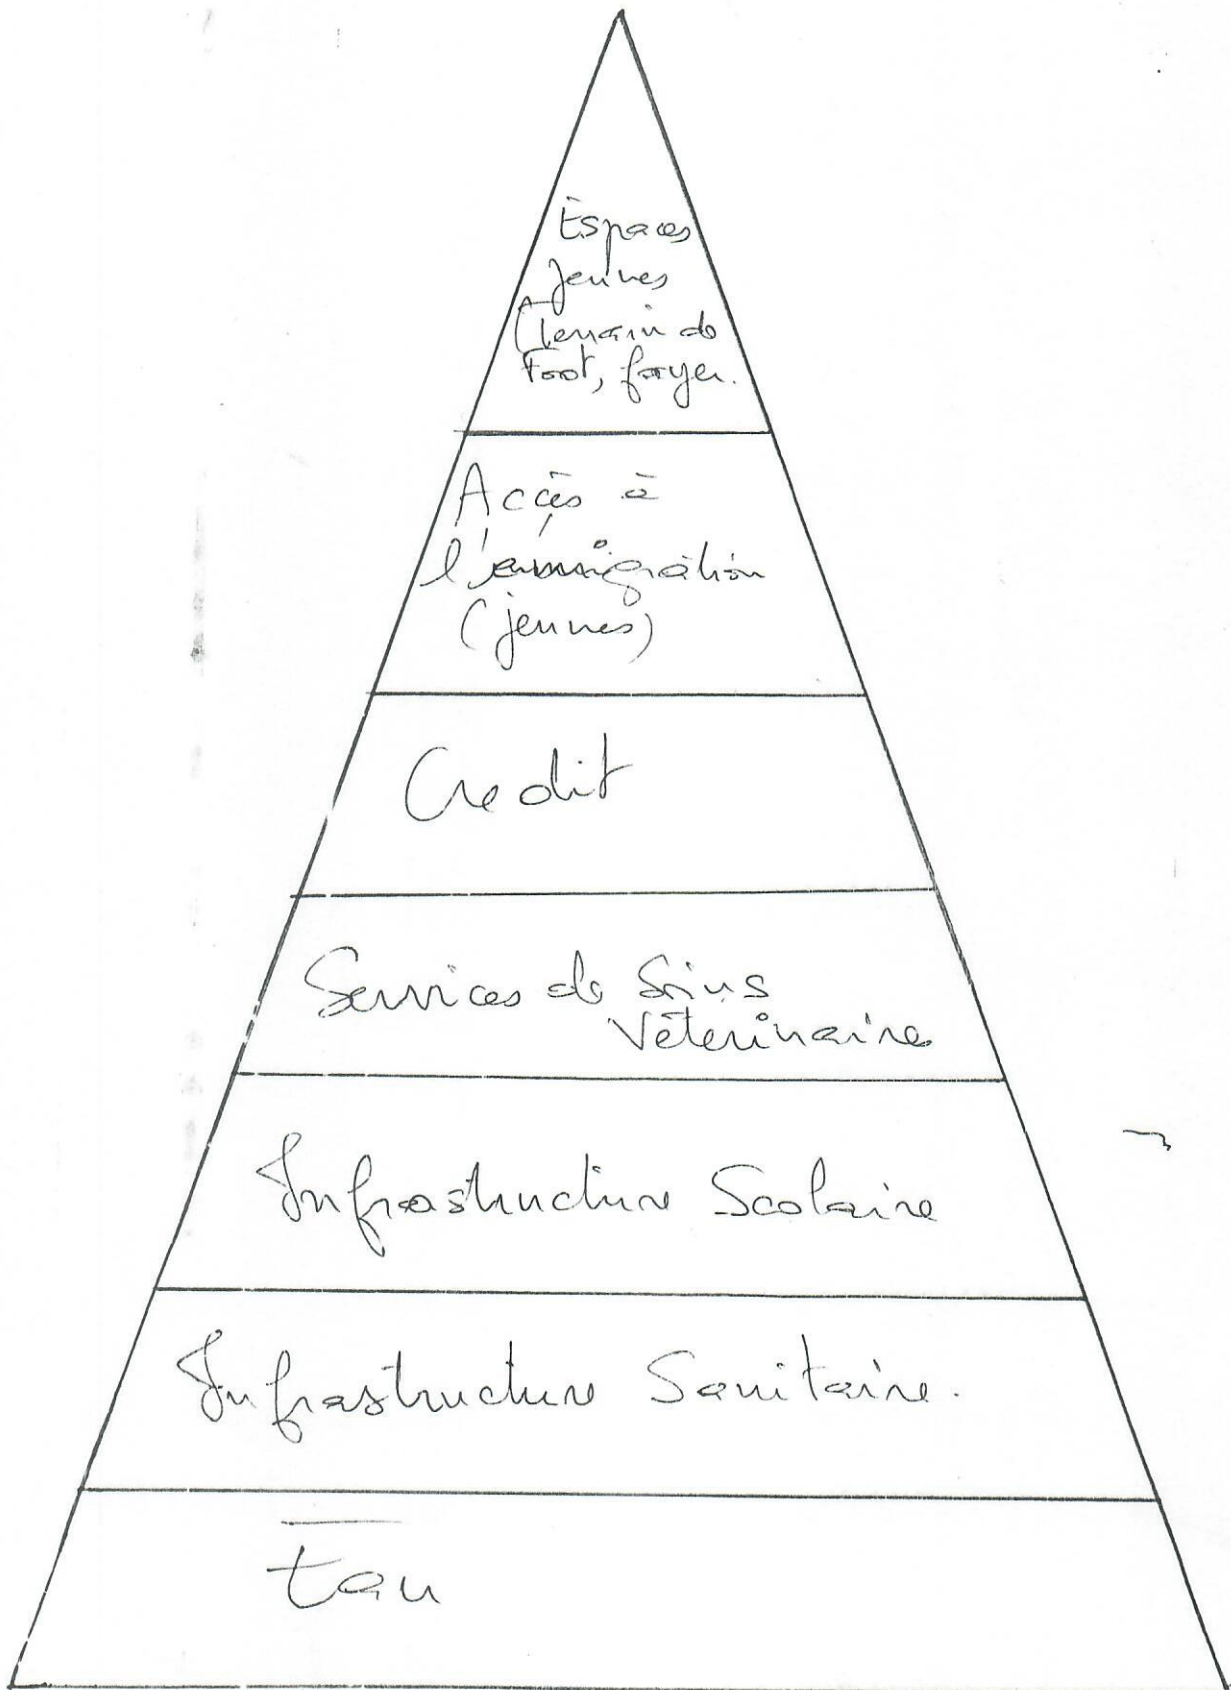 Espaces
jeunes
(Terrain de
Foot, foyer.
Accès à
l'émmigration
(jeunes)
Credit
Services de Soins
Véterinaire
Infrastructure Scolaire
Infrastructure Sanitaire.
Eau